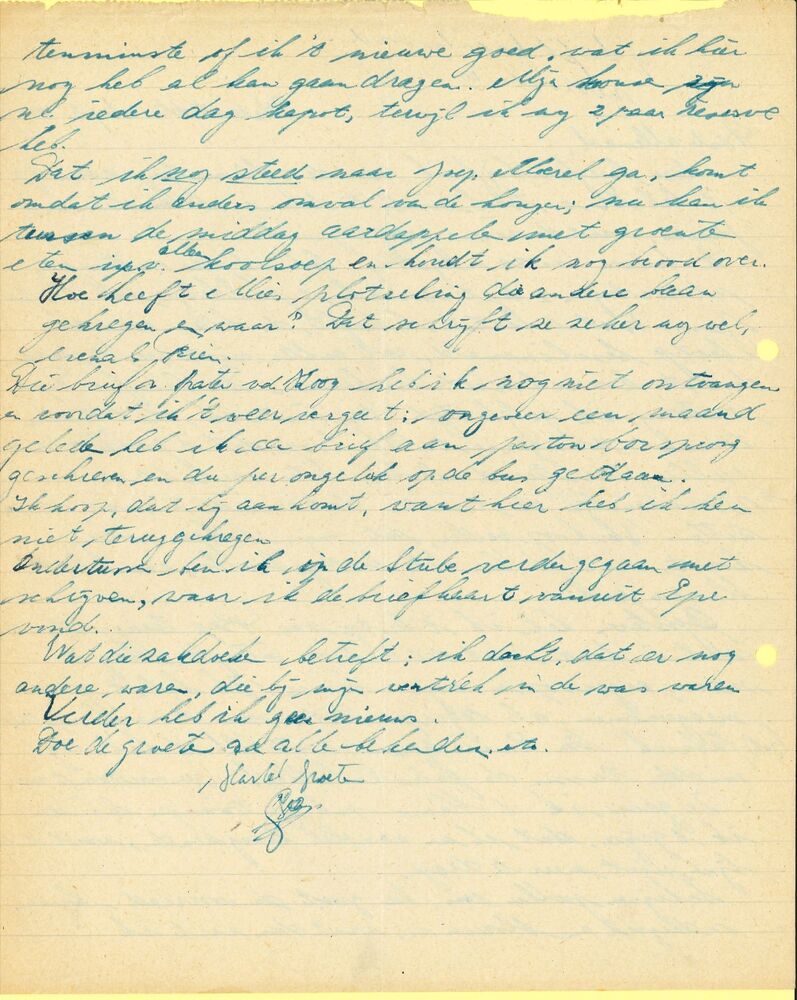 tenminste of ik 't nieuwe goed, wat ik hier
nog heb al kan gaan dragen. Mijn kouse zijn
nl. iedere dag kapot, terwijl ik nog 2 paar reserve
heb.
Dat ik nog steed naar Joep Morel ga, komt
omdat ik anders omval van de honger; nu kan ik
tussen de middag aardappele met groente
eten i.p.v. alleen koolsoep en houdt ik nog brood over.
Hoe heeft Mies plotseling die andere baan
gekregen en waar? Dat schrijft ze zeker nog wel,
evenals Rien.
Die brief v. Pater vd Hoog heb ik nog niet ontvangen
en voordat ik 't weer vergeet: ongeveer een maand
gelede heb ik een brief aan pastoor
geschreven en die per ongeluk op de bus gedaan.
Ik hoop, dat hij aankomt, want hier heb ik hem
niet teruggekregen
Ondertusse ben ik in de Stube verder gegaan met
schrijven, waar ik de briefkaart vanuit Epe
vond.
Wat die zakdoeke betreft: ik dacht, dat er nog
andere ware, die bij mijn vertrek in de was waren
Verder heb ik geen nieuws.
Doe de groete aan alle bekenden, etc.
Hartel. Groete